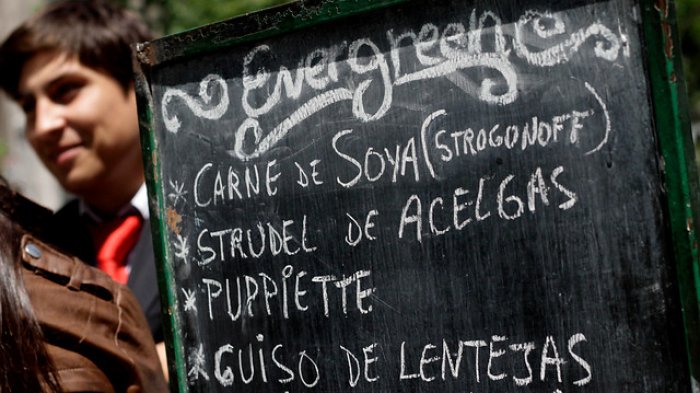 Evergreen
* CARNE DE SOYA (STROGONOFF)
* STRUDEL DE ACELGAS
* PUPPIETTE
* GUISO DE LENTEJAS